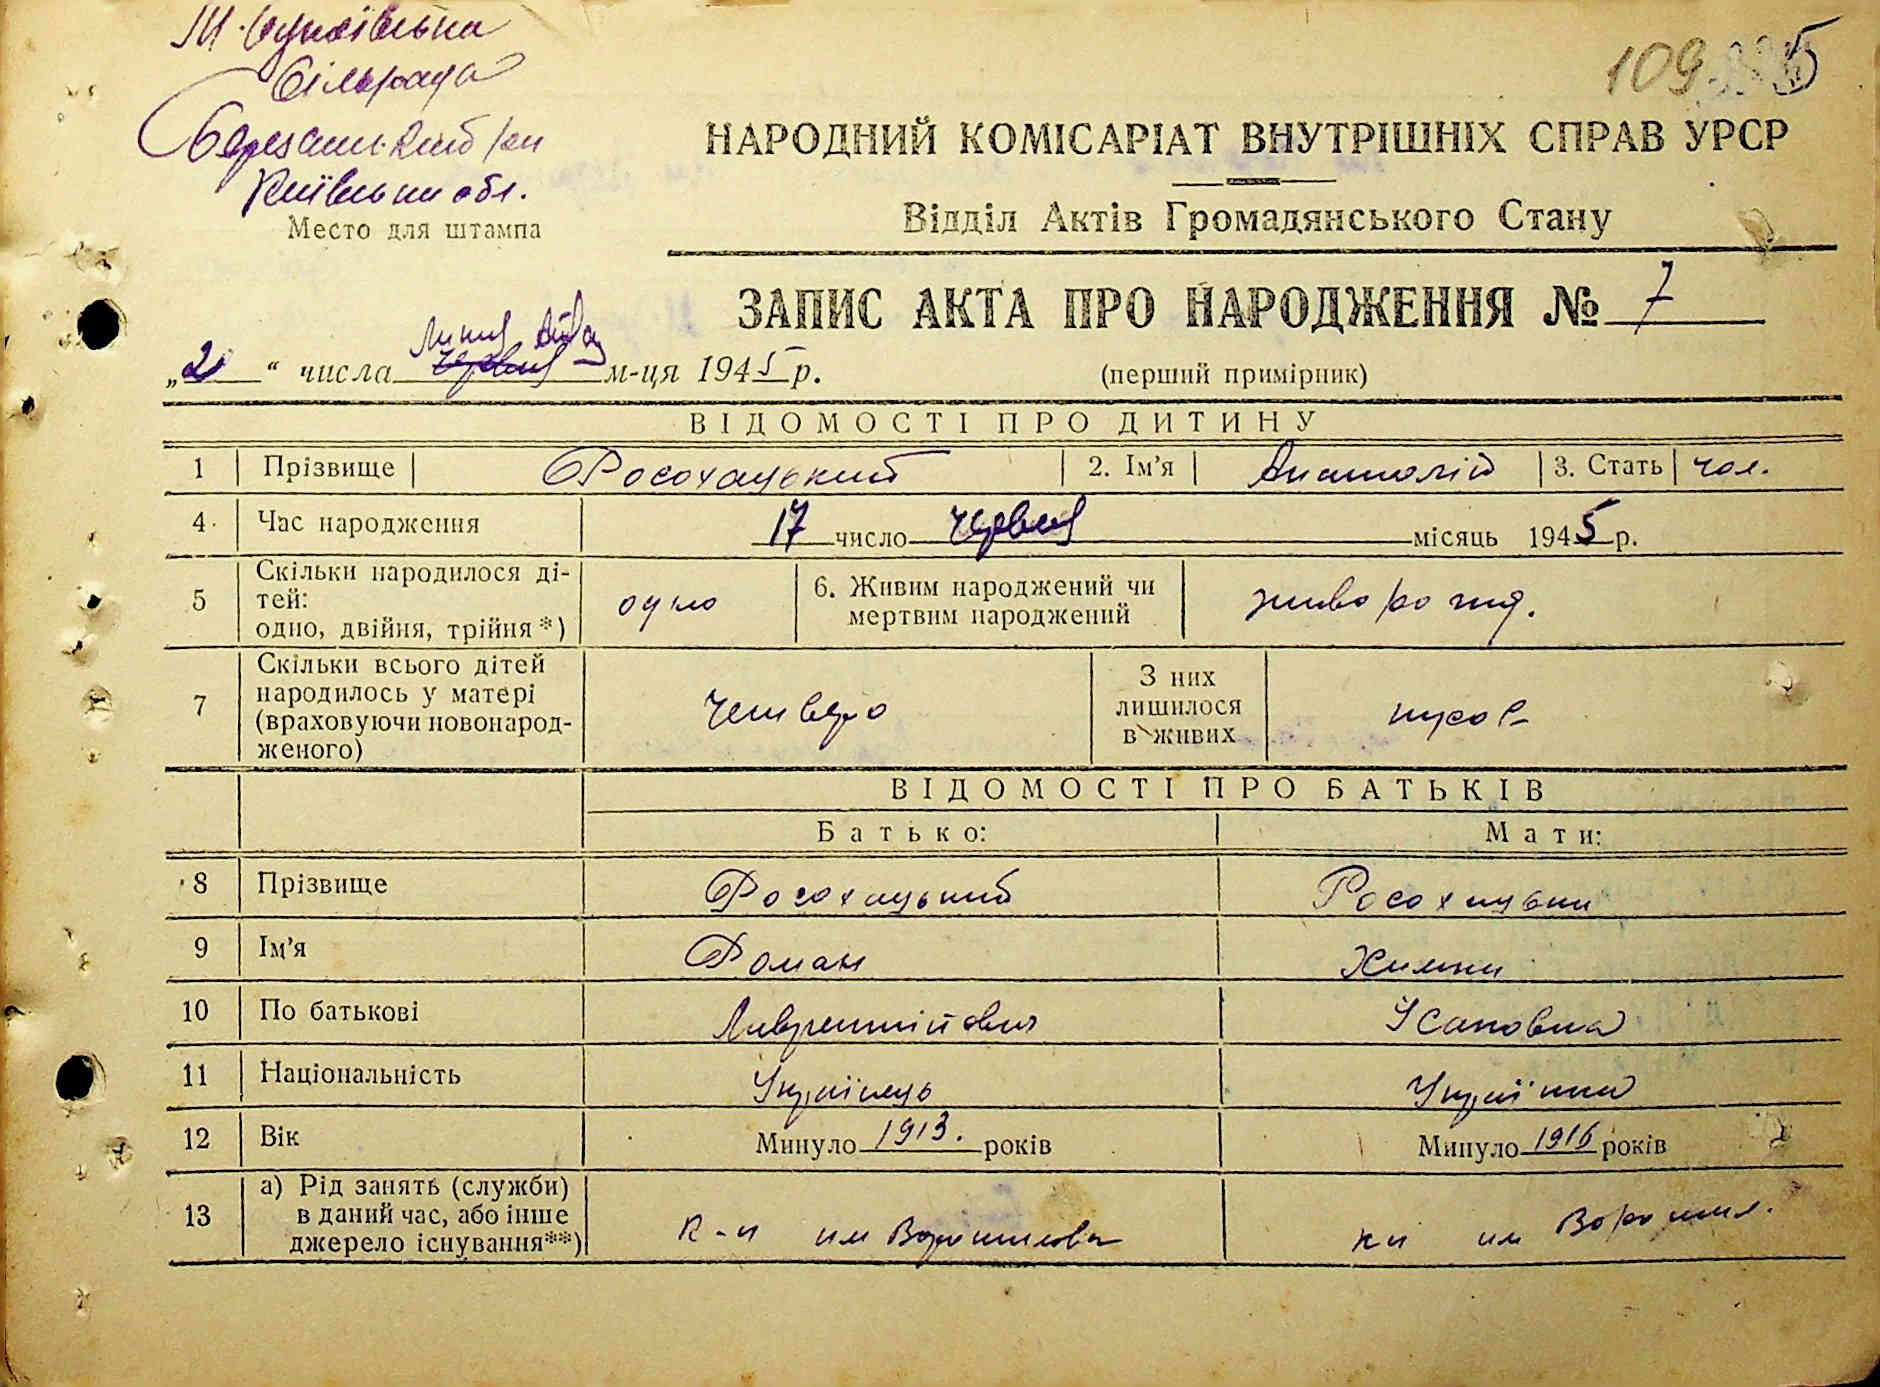 сільрада
Київськи обл.
109
5
НАРОДНИЙ КОМІСАРІАТ ВНУТРІШНІХ СПРАВ УРСР
Відділ Актів Громадянського Стану
Место для штампа
ЗАПИС АКТА ПРО НАРОДЖЕННЯ № 7
(перший примірник)
„2“ числа Липня м-ця 1945 р.
ВІДОМОСТІ ПРО ДИТИНУ
1 Прізвище Росохацький 2. Ім'я Анатолій 3. Стать чол.
4 Час народження 17 число червня місяць 1945 р.
5 Скільки народилося ді-
тей:
одно, двійня, трійня*) одно 6. Живим народжений чи
мертвим народжений
7 Скільки всього дітей
народилось у матері
(враховуючи новонарод-
женого) четверо З них
лишилося
в живих
ВІДОМОСТІ ПРО БАТЬКІВ
Батько: Мати:
8 Прізвище Росохацький Росохацьки
9 Ім'я Роман Химки
10 По батькові Лаврентійович Усаповна
11 Національність Українець Українка
12 Вік Минуло 1913. років Минуло 1916 років
13 а) Рід занять (служби)
в даний час, або інше
джерело існування**) к-п им Ворошилова кп им Ворошил.